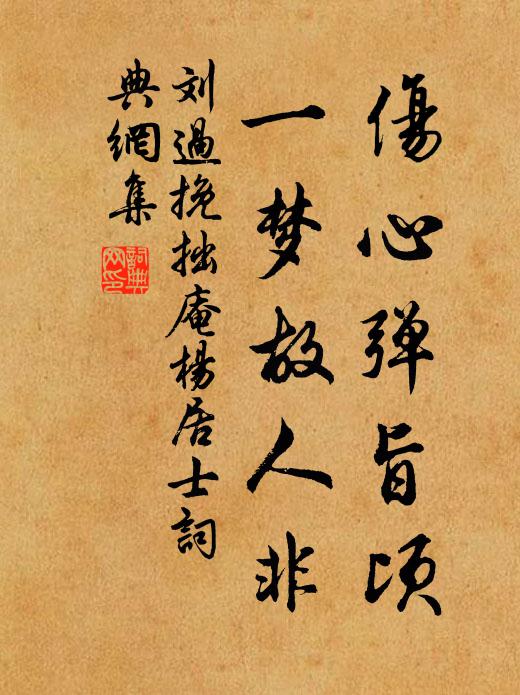 傷心弹旨顷
一梦故人非
刘過挽拙庵楊居士詞
典網集
詞典网印